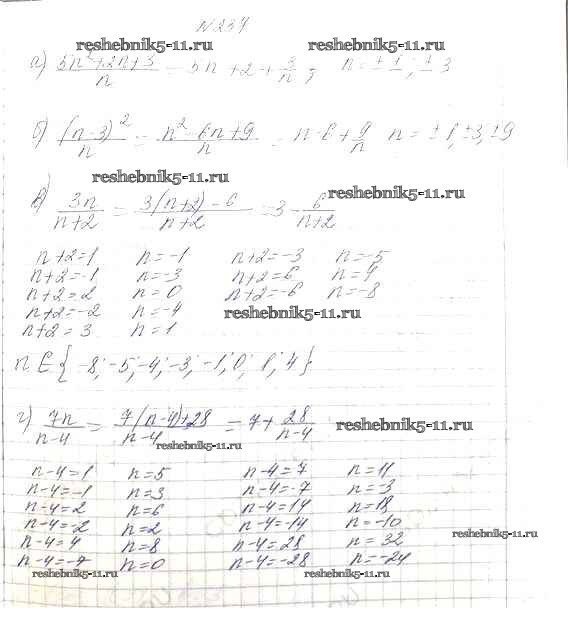 N 237
reshebnik5-11.ru reshebnik5-11.ru
а) (5n²+2n+3)/n = 5n + 2 + 3/n ; n = ±1 ; ±3
б) (n-3)²/n = (n² - 6n + 9)/n = n - 6 + 9/n n = ±1, ±3, ±9
reshebnik5-11.ru
reshebnik5-11.ru
в) 3n/(n+2) = (3(n+2) - 6)/(n+2) = 3 - 6/(n+2)
n+2=1 n=-1 n+2=-3 n=-5
n+2=-1 n=-3 n+2=6 n=4
n+2=2 n=0 n+2=-6 n=-8
n+2=-2 n=-4 reshebnik5-11.ru
n+2=3 n=1
n ∈ {-8; -5; -4; -3; -1; 0; 1; 4}
г) 7n/(n-4) = (7(n-4)+28)/(n-4) = 7 + 28/(n-4) reshebnik5-11.ru
reshebnik5-11.ru
n-4=1 n=5 n-4=7 n=11
n-4=-1 n=3 n-4=-7 n=-3
n-4=2 n=6 n-4=14 n=18
n-4=-2 n=2 n-4=-14 n=-10
reshebnik5-11.ru
n-4=4 n=8 n-4=28 n=32
n-4=-4 n=0 n-4=-28 n=-24
reshebnik5-11.ru reshebnik5-11.ru